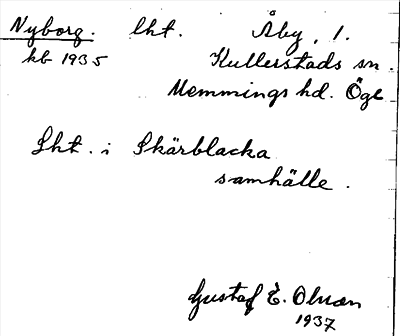 Nyborg. lht. Åby, 1.
kb 1935 Kullerstads sn.
Memmings hd. Ögl
Lht. i Skärblacka
samhälle.
Gustaf E. Olson
1937